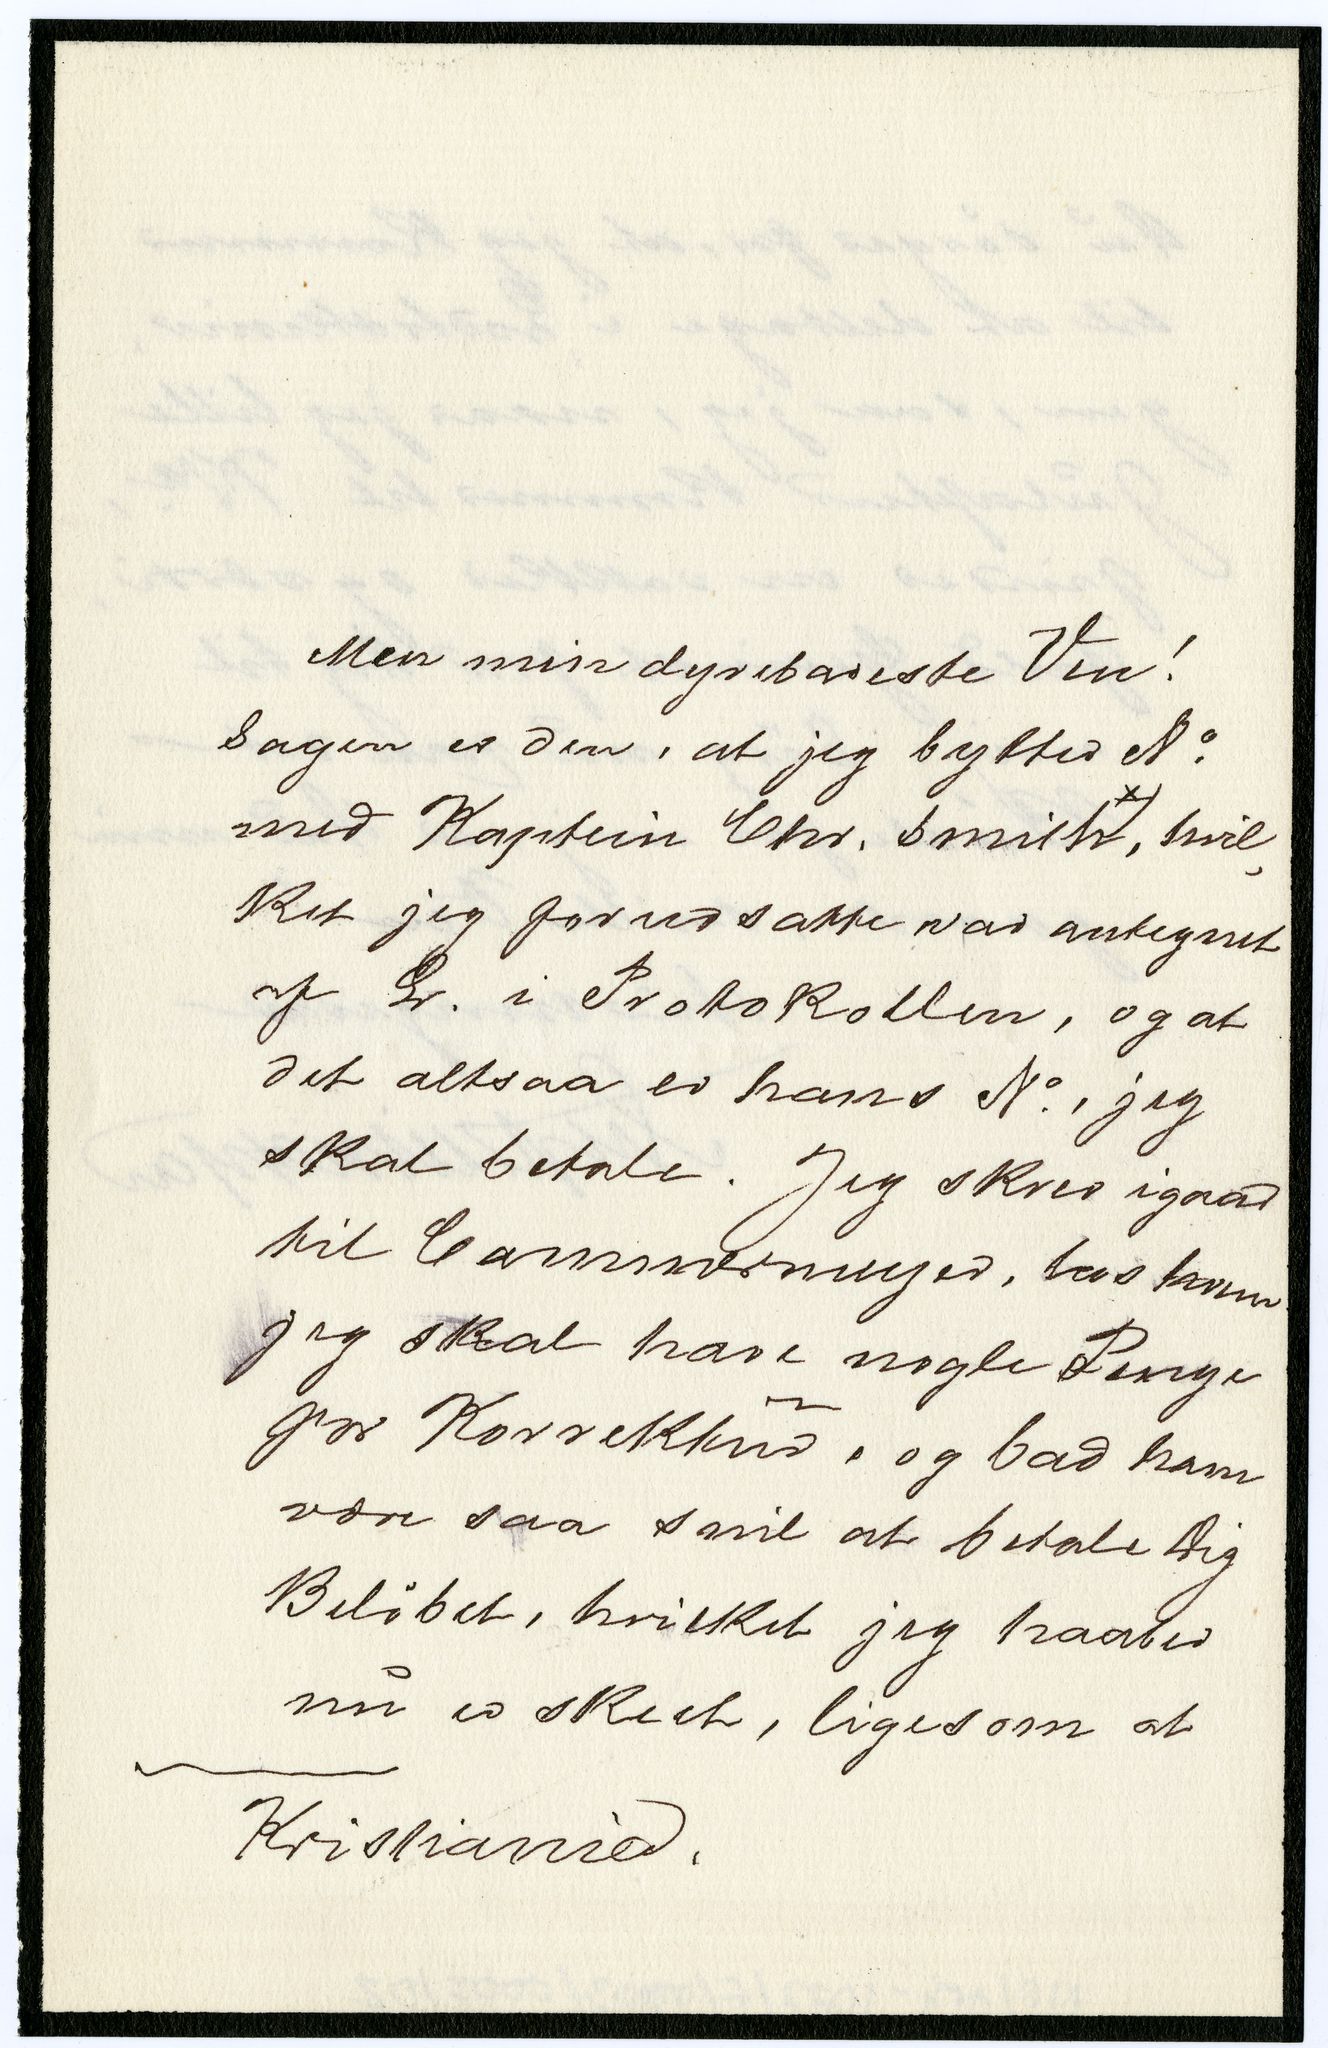 Men min dyrebareste Ven!
Sagen er den, at jeg bytted No.
med Kaptein Chr. Smith x), hvil,
ket jeg forudsatte var antegnet
af Gr. i Protokollen, og at
det altsaa er hans No., jeg
skal betale. Jeg skrev igaar
til Cammermeyer, hos hvem
jeg skal have nogle Penge
for Korrektur, og bad ham
være saa snil at betale Dig
Belöbet, hvilket jeg haaber
nu er skeet, ligesom at
Kristiania.